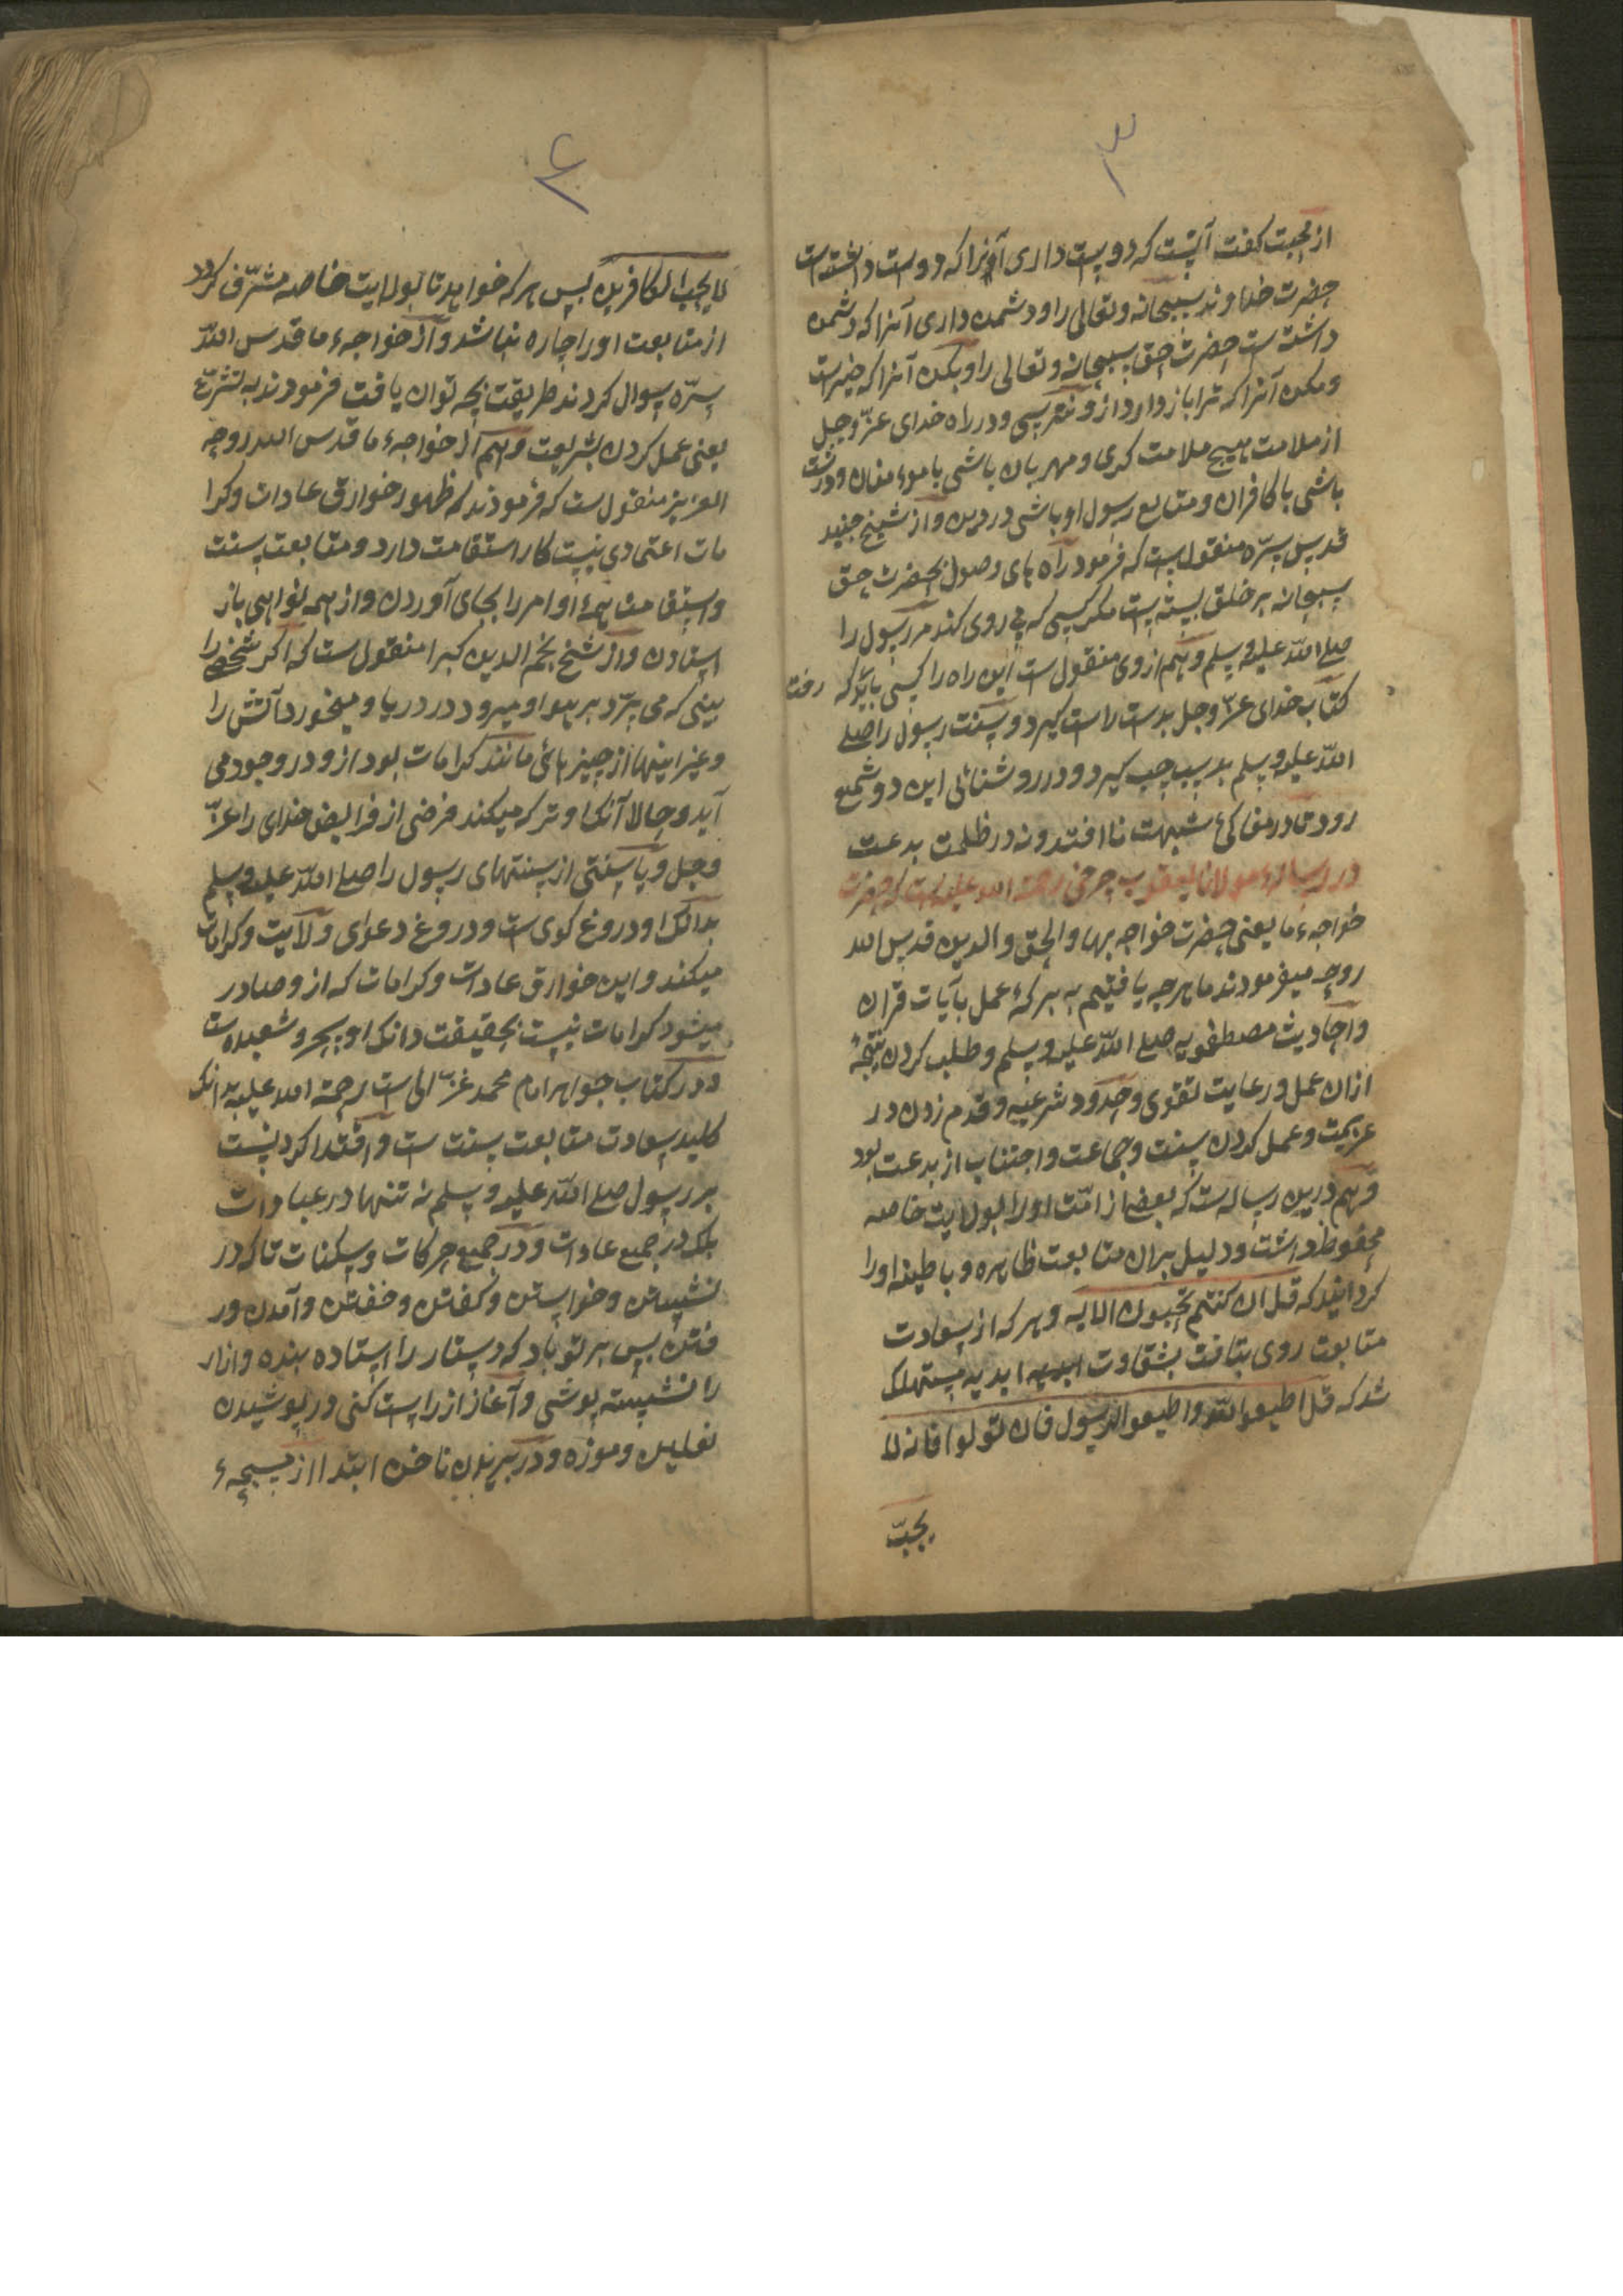 ۳
از محبت کفت آنست که دوست داری آنرا که دوست داشته است
حضرت خداوند سبحانه و تعالی را و دشمن داری آنرا که دشمن
داشته است حضرت حق سبحانه و تعالی را و بکن آنرا که خیرست
ومکن آنرا که ترا باز دارد از و نترسی و در راه خدای عزّ وجل
از ملامت هیچ ملامت کری و مهربان باشی با موءمنان ودرشت
باشی با کافران و متابع رسول او باشی در دین و از شیخ جنید
قدس سرّه منقول ست که فرمود راه های وصول بحضرت حق
سبحانه بر خلق بسته است مکر کسی که پی روی کند مر رسول را
صلے اللّه علیه وسلم وهم از وی منقول ست این راه را کسی باید که رفت
کتاب خدای عزّ وجل بدست راست کیرد و سنت رسول را صلے
اللّه علیه وسلم بدست چپ کیرد و در روشنائی این دو شمع
رود تا در مغاکیٔ شبهت نا افتد و نه در ظلمت بدعت
در رسالهء مولانا یعقوب چرخی رحمة الله علیه است که حضرت
خواجهء ما یعنی حضرت خواجه بهاو الحق والدین قدس الله
روحه میفرمودند ما هرچه یافتیم به برکهٔ عمل بآیات قران
و احادیث مصطفویه صلے اللّه علیه وسلم و طلب کردن نتیجهٔ
ازان عمل و رعایت تقوی و حدود شرعیه و قدم زدن در
عزیمت و عمل کردن سنت وجماعت و اجتناب از بدعت بود
وهم درین رساله ست که بعضے از امّت او را بولایت خاصه
محفوظ داشت و دلیل بران متابعت ظاهره و باطینه او را
کردانید که قل ان کنتم تحبون الایه وهر که از سعادت
متابعت روی بتافت بشقاوت ابدیه مستهلک
شد که قل اطیعوا اللّه واطیعوا الرسول فان تولوا فانه لا
یحبّ
۴
لا یحب الکافرین پس هر که خواهد تا بولایت خاصه مشرّف کردد
از متابعت او را چاره نباشد و از خواجهء ما قدس اللّه
سرّه سوال کردند طریقت بچه توان یافت فرمودند به تشرّع
یعنی عمل کردن بشریعت وهم از خواجهء ما قدس الله روحه
العزیز منقول ست که فرمودند که ظهور خوارق عادات وکرا
مات اعتمادی نیست کار استقامت دارد و متابعت سنت
و استقامت همهٔ اوامر را بجای آوردن و از همه نواهی باز
استادن و از شیخ نجم الدین کبرا منقول ست که اکر شخصے را
بینی که می پرّد بر هوا و میرود در دریا و میخورد آتش را
وغیر اینها از چیز هائی مانند کرامات بود از و در وجود می
آید و حالا آنک او ترک میکند فرضی از فرایض خدای را عزّ
وجل ویا سنتی از سنتهای رسول را صلے اللّه علیه وسلم
بدانک او دروغ کوی ست و دروغ دعوای ولایت و کرامات
میکند و این خوارق عادات و کرامات که از و صادر
میشود کرامات نیست بحقیقت دانک او سحر و شعبده ست
و در کتاب جواهر امام محمد غزالی است رحمة الله علیه بدانک
کلید سعادت متابعت سنت ست و اقتدا کردنست
بر رسول صلے اللّه علیه وسلم نه تنها در عبادات
بلک در جمیع عادات و در جمیع حرکات وسکنات تا که در
نشستن و خواستن و کفتن و خفتن و آمدن ور
فتن پس بر تو باد که دستار را استاده بنده و ازار
را نشسته پوشی و آغاز از راست کنی در پوشیدن
نعلین و موزه و در بریدن ناخن ابتدا از مسبحهء